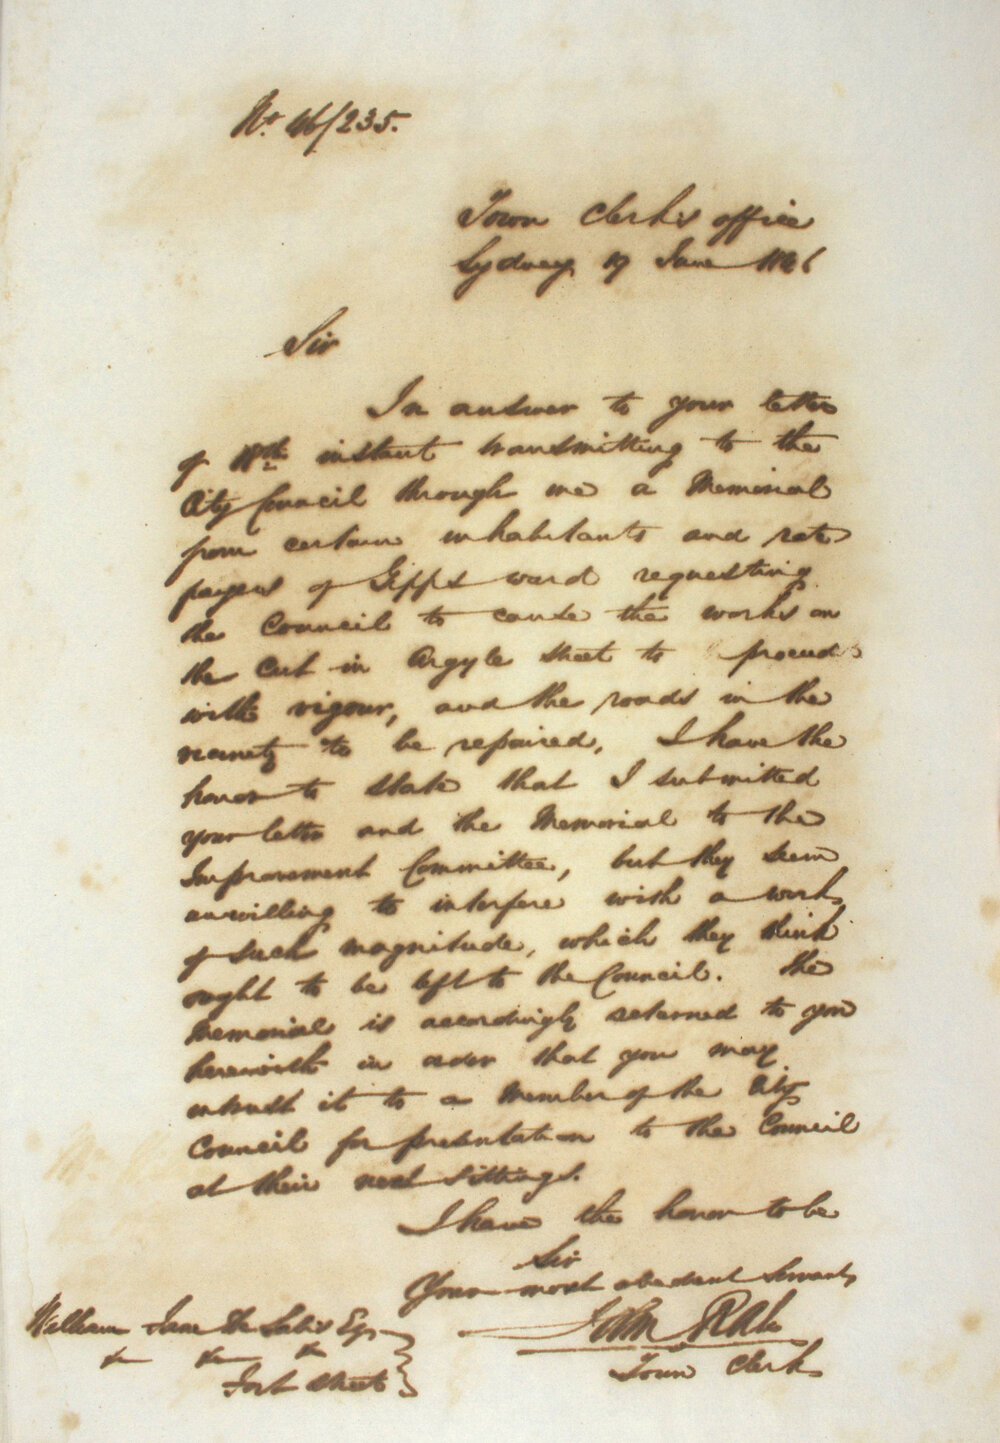 No. 46/235.
Town Clerk's office
Sydney 19 June 1846
Sir
In answer to your letter
of 18th instant transmitting to the
City Council through me a Memorial
from certain inhabitants and rate
payers of Gipps ward requesting
the Council to cause the works on
the Cut in Argyle Street to proceed
with vigour, and the roads in the
vicinity to be repaired, I have the
honor to state that I submitted
your letter and the Memorial to the
Improvement Committee, but they seem
unwilling to interfere with a work
of such magnitude, which they think
ought to be left to the Council. The
Memorial is accordingly returned to you
herewith in order that you may
intrust it to a Member of the City
Council for presentation to the Council
at their next sittings.
I have the honor to be
Sir
Your most obedient Servant,
John Rae
Town Clerk
William Esqr
Fort Street